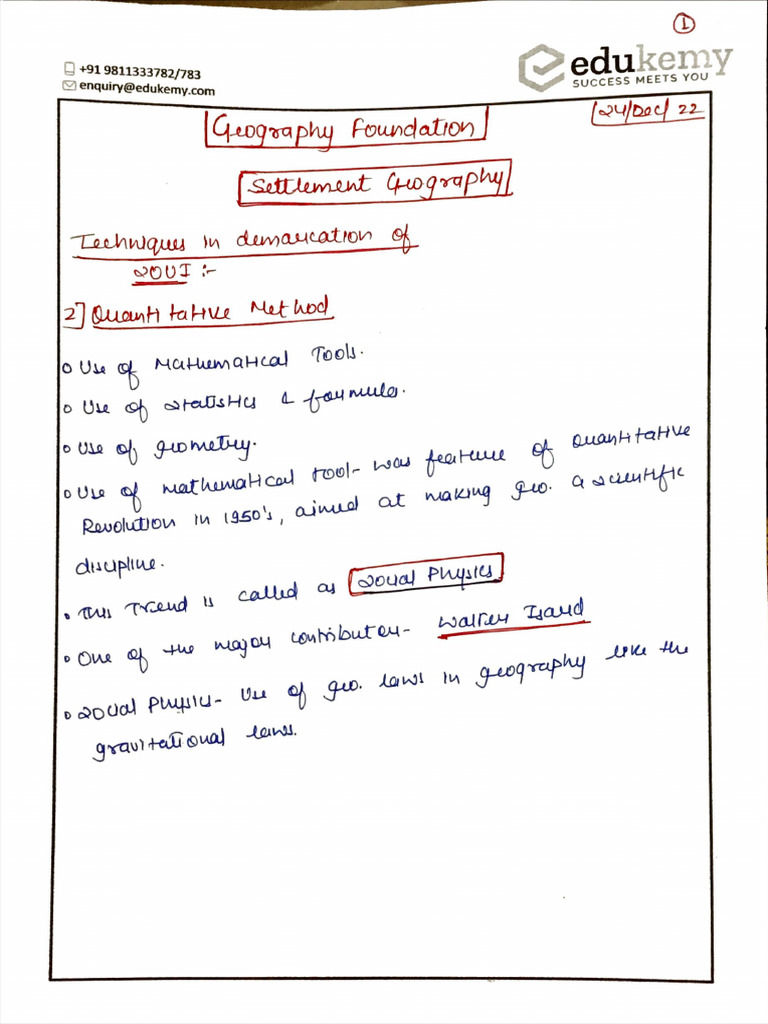 ①
+91 9811333782/783
enquiry@edukemy.com
edukemy
SUCCESS MEETS YOU
24/Dec/22
Geography Foundation
Settlement Geography
Techniques in demarcation of
ZOUI :-
2] Quantitative Method
o Use of Mathematical Tools.
o Use of statistics & formula.
o Use of geometry.
o Use of mathematical tool- was feature of Quantitative
Revolution in 1950's, aimed at making geo. a scientific
discipline.
• This Trend is called as Social Physics
• One of the major contributer- Walter Isard
• Social Physics- Use of geo. laws in geography like the
gravitational laws.